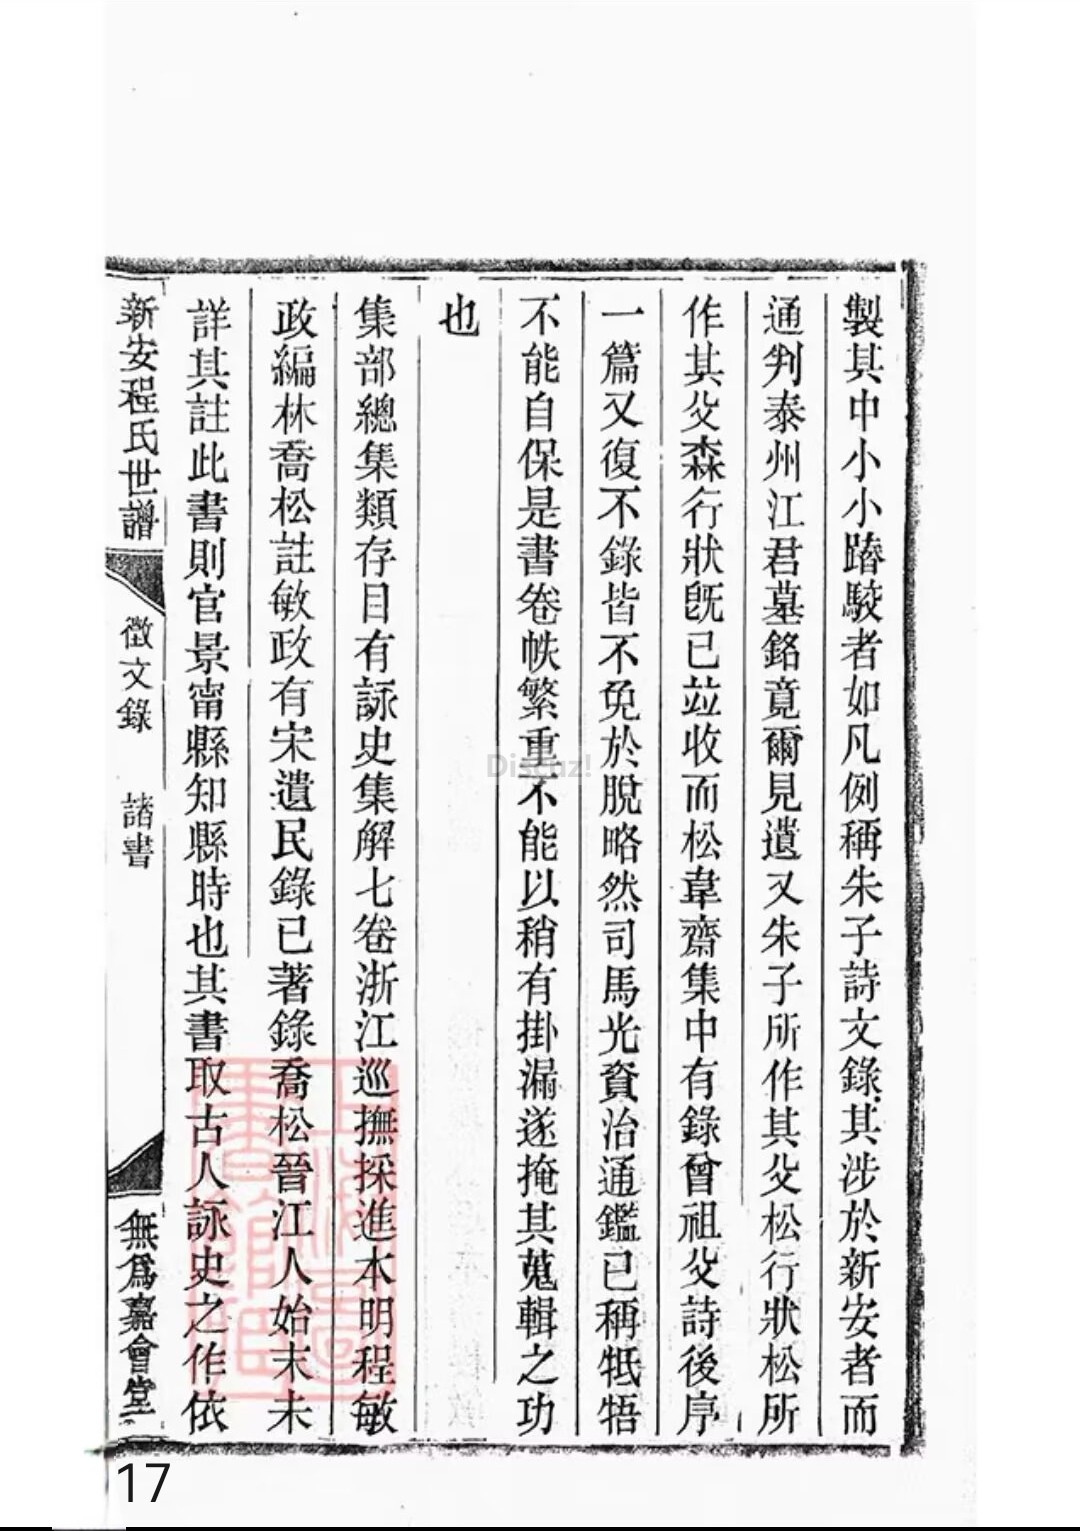 製其中小小踳駮者如凡例稱朱子詩文錄其涉於新安者而
通判泰州江君墓銘竟爾見遺又朱子所作其父松行狀松所
作其父森行狀旣已竝收而松韋齋集中有錄曾祖父詩後序
一篇又復不錄皆不免於脫略然司馬光資治通鑑已稱牴牾
不能自保是書卷帙繁重不能以稍有掛漏遂掩其蒐輯之功
也
集部總集類存目有詠史集解七卷浙江巡撫採進本明程敏
政編林喬松註敏政有宋遺民錄已著錄喬松晉江人始末未
詳其註此書則官景甯縣知縣時也其書取古人詠史之作依
新安程氏世譜
徵文錄
諸書
無爲嘉會堂
Discuz!
17